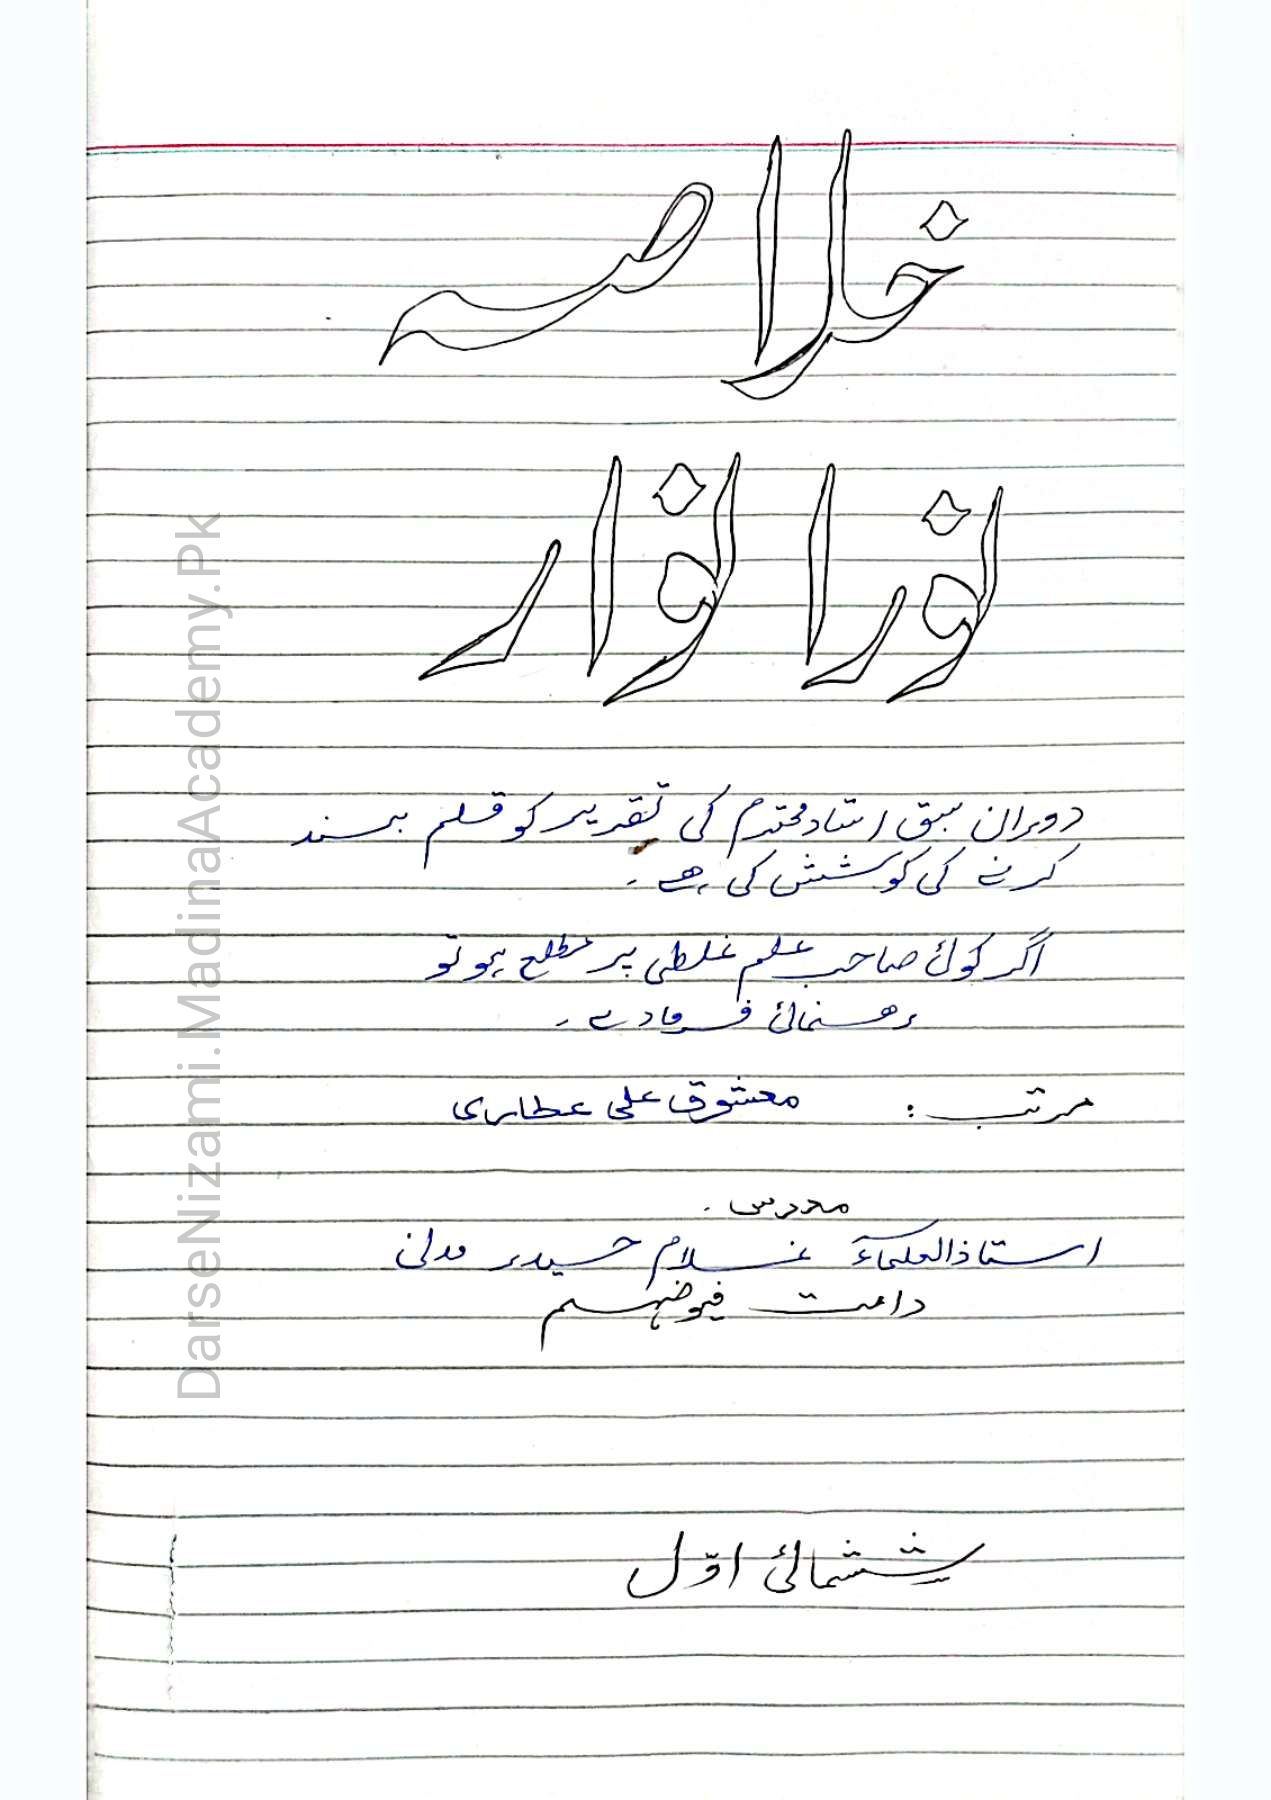 خلاصہ
نورالانوار
دوران سبق استاد محترم کی تقریر کو قلم بند
کرنے کی کوشش کی ہے ۔
اگر کوئی صاحب علم غلطی پر مطلع ہو تو
رھنمائی فرمادے ۔
مرتب : معشوق علی عطاری
مدرس ۔
استاذالعلمآء غلام حیدر مدنی
دامت فیوضہم
ششمائی اوّل
DarseNizami.MadinaAcademy.Pk